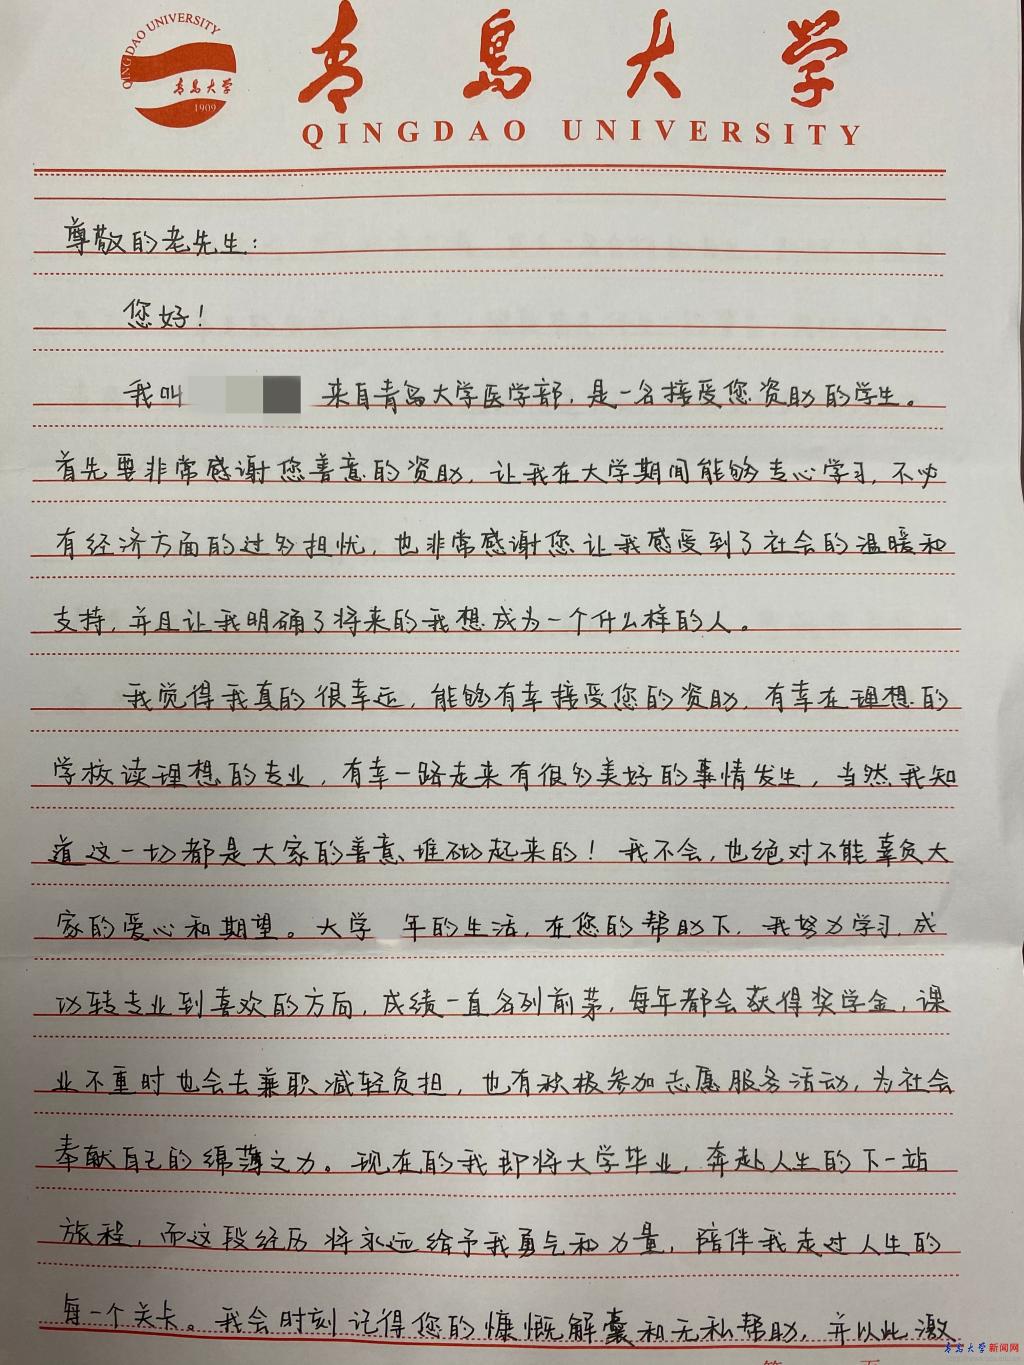 QINGDAO UNIVERSITY
青岛大学
1909
青岛大学
QINGDAO UNIVERSITY
尊敬的老先生：
您好！
我叫 来自青岛大学医学部，是一名接受您资助的学生。
首先要非常感谢您善意的资助，让我在大学期间能够专心学习，不必
有经济方面的过多担忧，也非常感谢您让我感受到了社会的温暖和
支持，并且让我明确了将来的我想成为一个什么样的人。
我觉得我真的很幸运，能够有幸接受您的资助，有幸在理想的
学校读理想的专业，有幸一路走来有很多美好的事情发生，当然我知
道这一切都是大家的善意堆砌起来的！我不会，也绝对不能辜负大
家的爱心和期望。大学 年的生活，在您的帮助下，我努力学习，成
功转专业到喜欢的方向，成绩一直名列前茅，每年都会获得奖学金，课
业不重时也会去兼职减轻负担，也有积极参加志愿服务活动，为社会
奉献自己的绵薄之力。现在的我即将大学毕业，奔赴人生的下一站
旅程，而这段经历将永远给予我勇气和力量，陪伴我走过人生的
每一个关卡。我会时刻记得您的慷慨解囊和无私帮助，并以此激
青岛大学新闻网